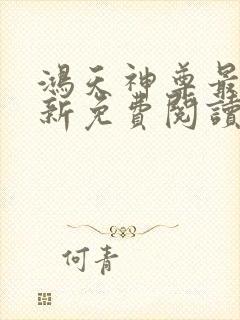 鴻天神尊最
新免費閱讀
何青